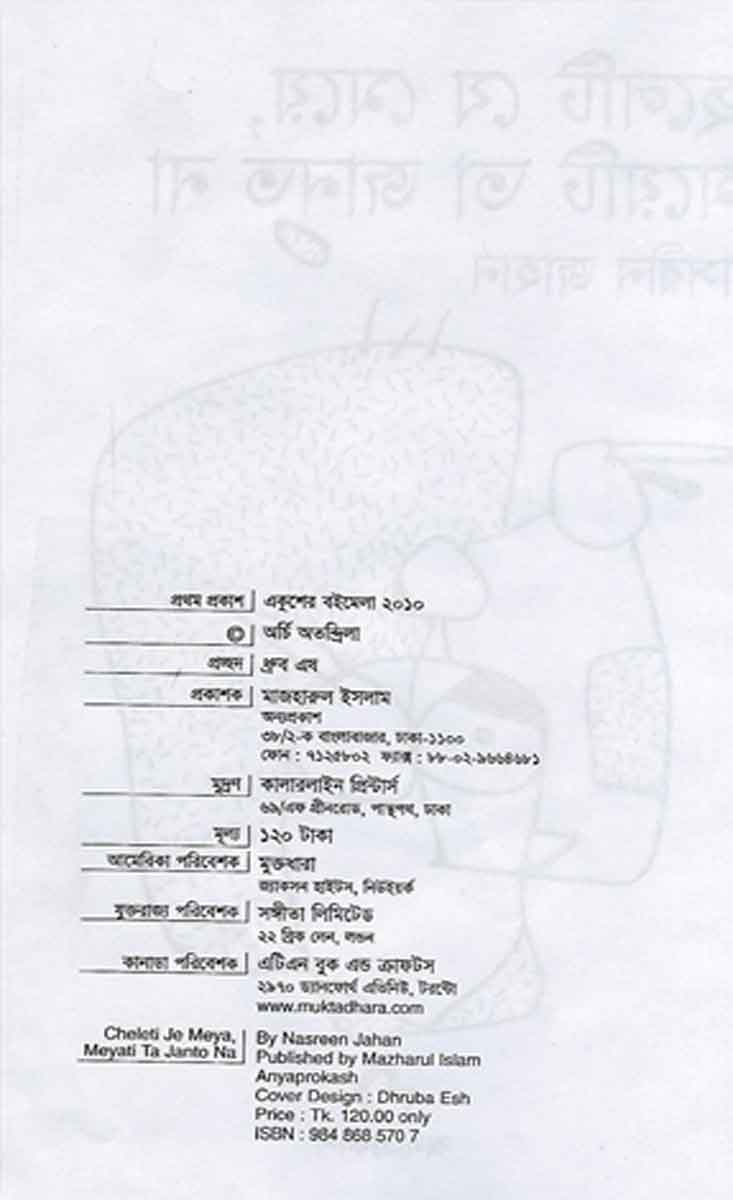 প্রথম প্রকাশ একুশের বইমেলা ২০১০
© অর্চি অতন্দ্রিলা
প্রচ্ছদ ধ্রুব এষ
প্রকাশক মাজহারুল ইসলাম
অন্যপ্রকাশ
৩৮/২-ক বাংলাবাজার, ঢাকা-১১০০
ফোন : ৭১২৫৮০২ ফ্যাক্স : ৮৮-০২-৯৬৬৪৬৮১
মুদ্রণ কালারলাইন প্রিন্টার্স
৬৯/এফ গ্রীনরোড, পান্থপথ, ঢাকা
মূল্য ১২০ টাকা
আমেরিকা পরিবেশক মুক্তধারা
জ্যাকসন হাইটস, নিউইয়র্ক
যুক্তরাজ্য পরিবেশক সঙ্গীতা লিমিটেড
২২ ব্রিক লেন, লন্ডন
কানাডা পরিবেশক এটিএন বুক এন্ড ক্রাফটস
২৯৭০ ড্যানফোর্থ এভিনিউ, টরন্টো
www.muktadhara.com
Cheleti Je Meya, By Nasreen Jahan
Meyati Ta Janto Na Published by Mazharul Islam
Anyaprokash
Cover Design : Dhruba Esh
Price : Tk. 120.00 only
ISBN : 984 868 570 7